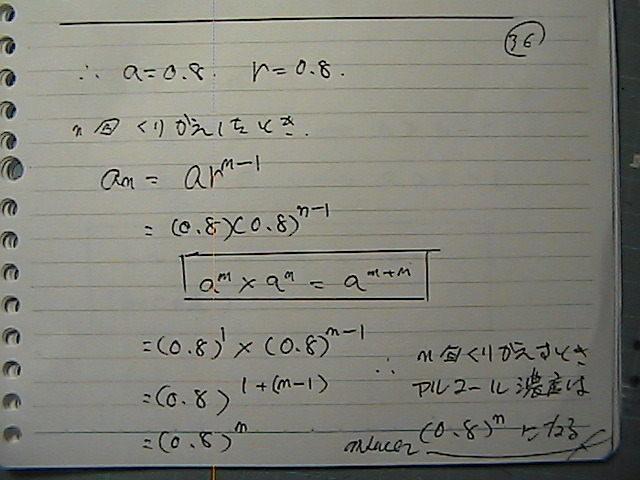 36
∴ a=0.8. r=0.8.
n回くりかえしたとき.
an = ar^n-1
= (0.8)(0.8)^n-1
a^m × a^n = a^m+n
= (0.8)^1 × (0.8)^n-1
= (0.8)^1+(n-1)
= (0.8)^n
∴ n回くりかえすとき
アルコール濃度は
(0.8)^n になる